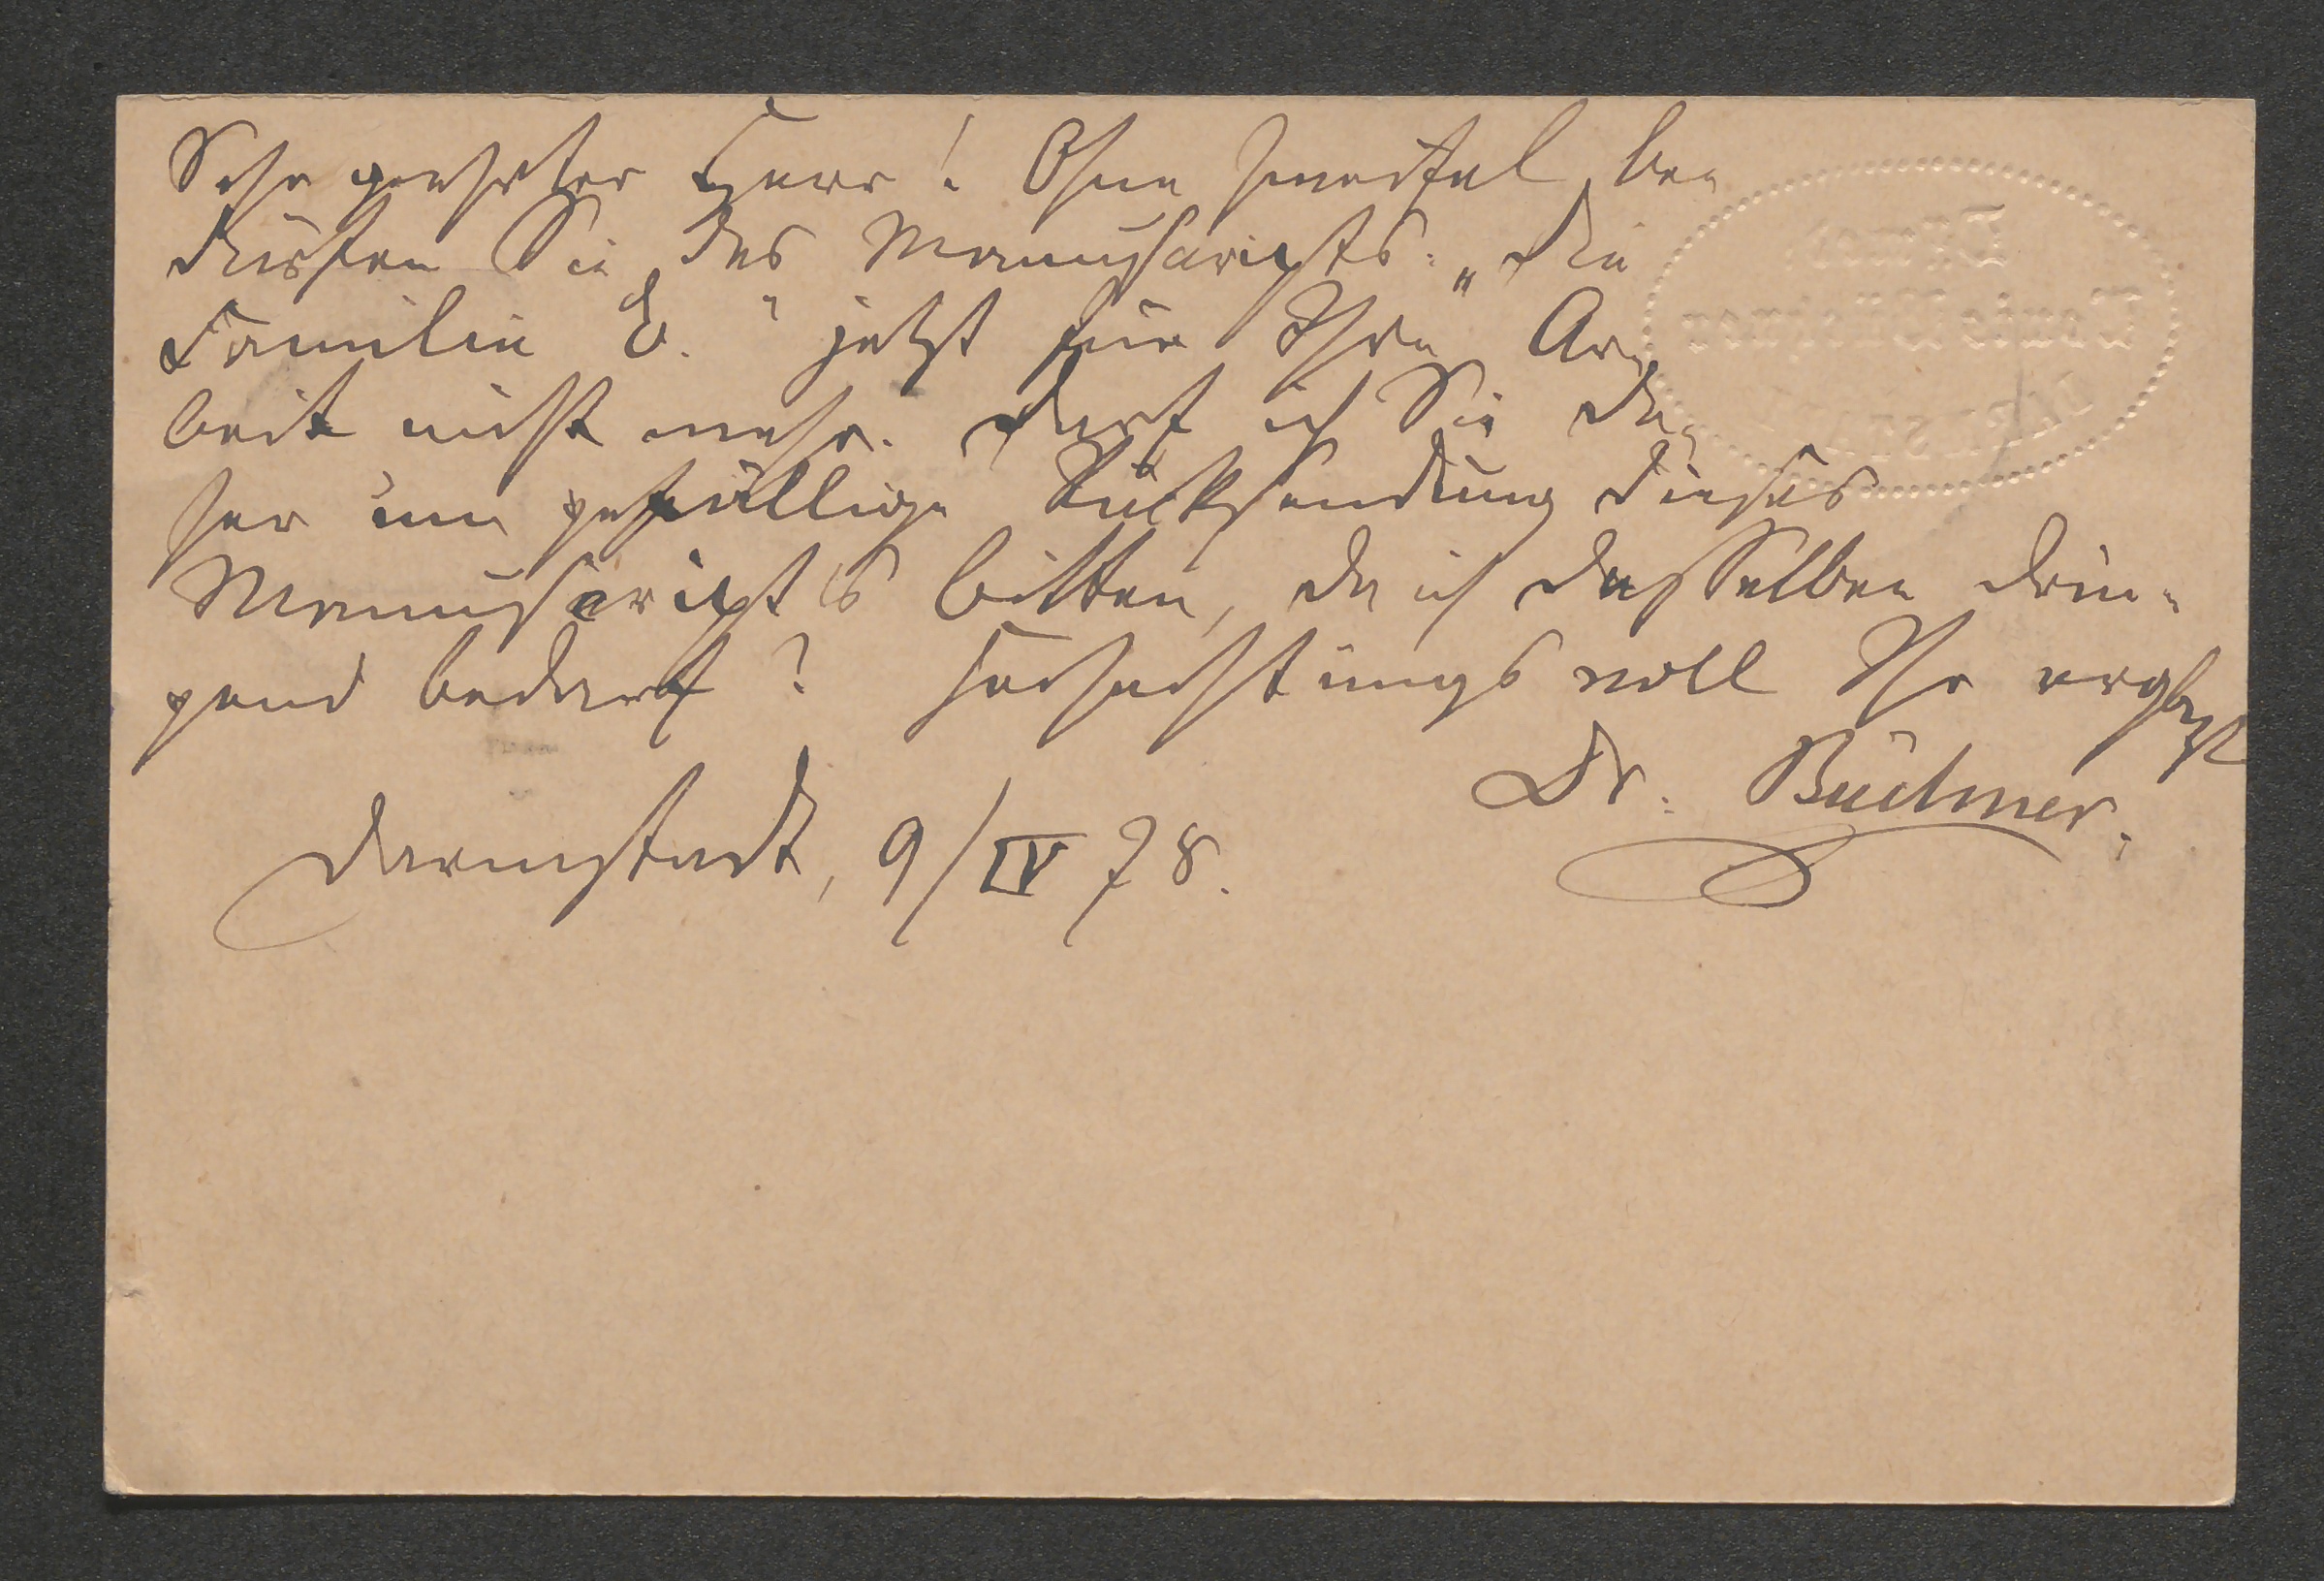 Sehr geehrter Herr! Ohne Zweifel be-
dürfen Sie des Manuscripts: „Die
Familie E." jetzt für Ihre Ar-
beit nicht mehr. Darf ich Sie da-
her um gefällige Rücksendung dieses
Manuscripts bitten, da ich desselben drin-
gend bedarf? Hochachtungsvoll Ihr ergbst
Dr. Büchner.
Darmstadt, 9/IV 78.